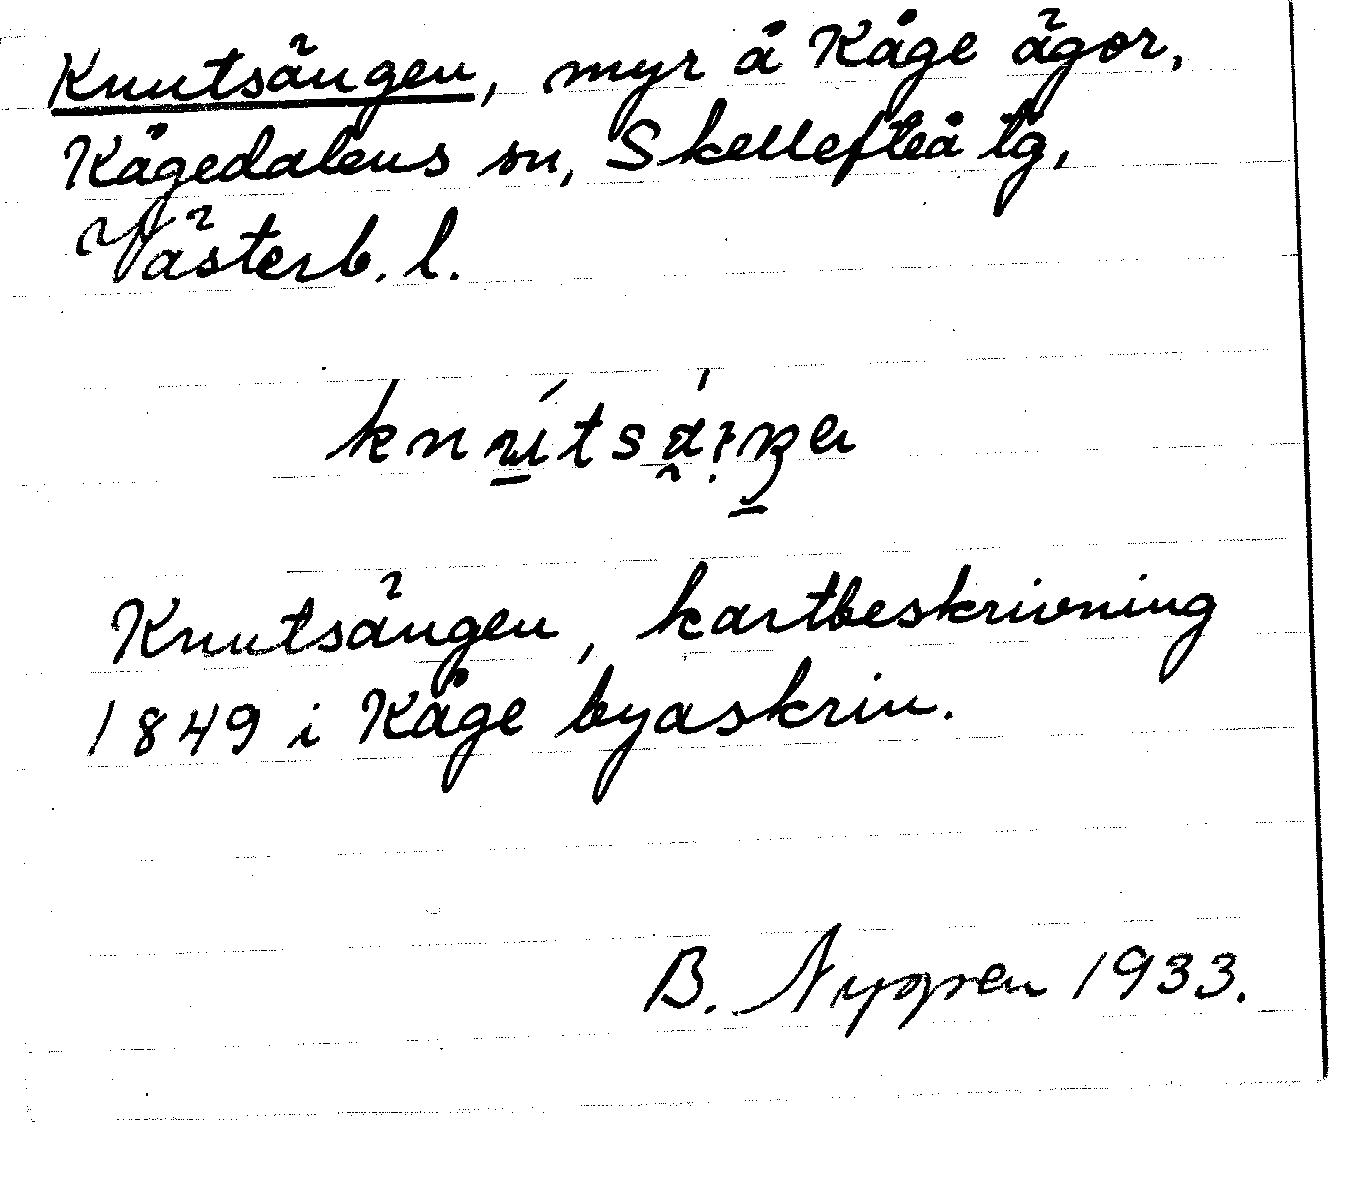 Knutsängen, myr å Kåge ägor,
Kågedalens sn, Skellefteå tg,
Västerb. l.
Knutsängen, kartbeskrivning
1849 i Kåge byaskrin.
B. Nygren 1933.